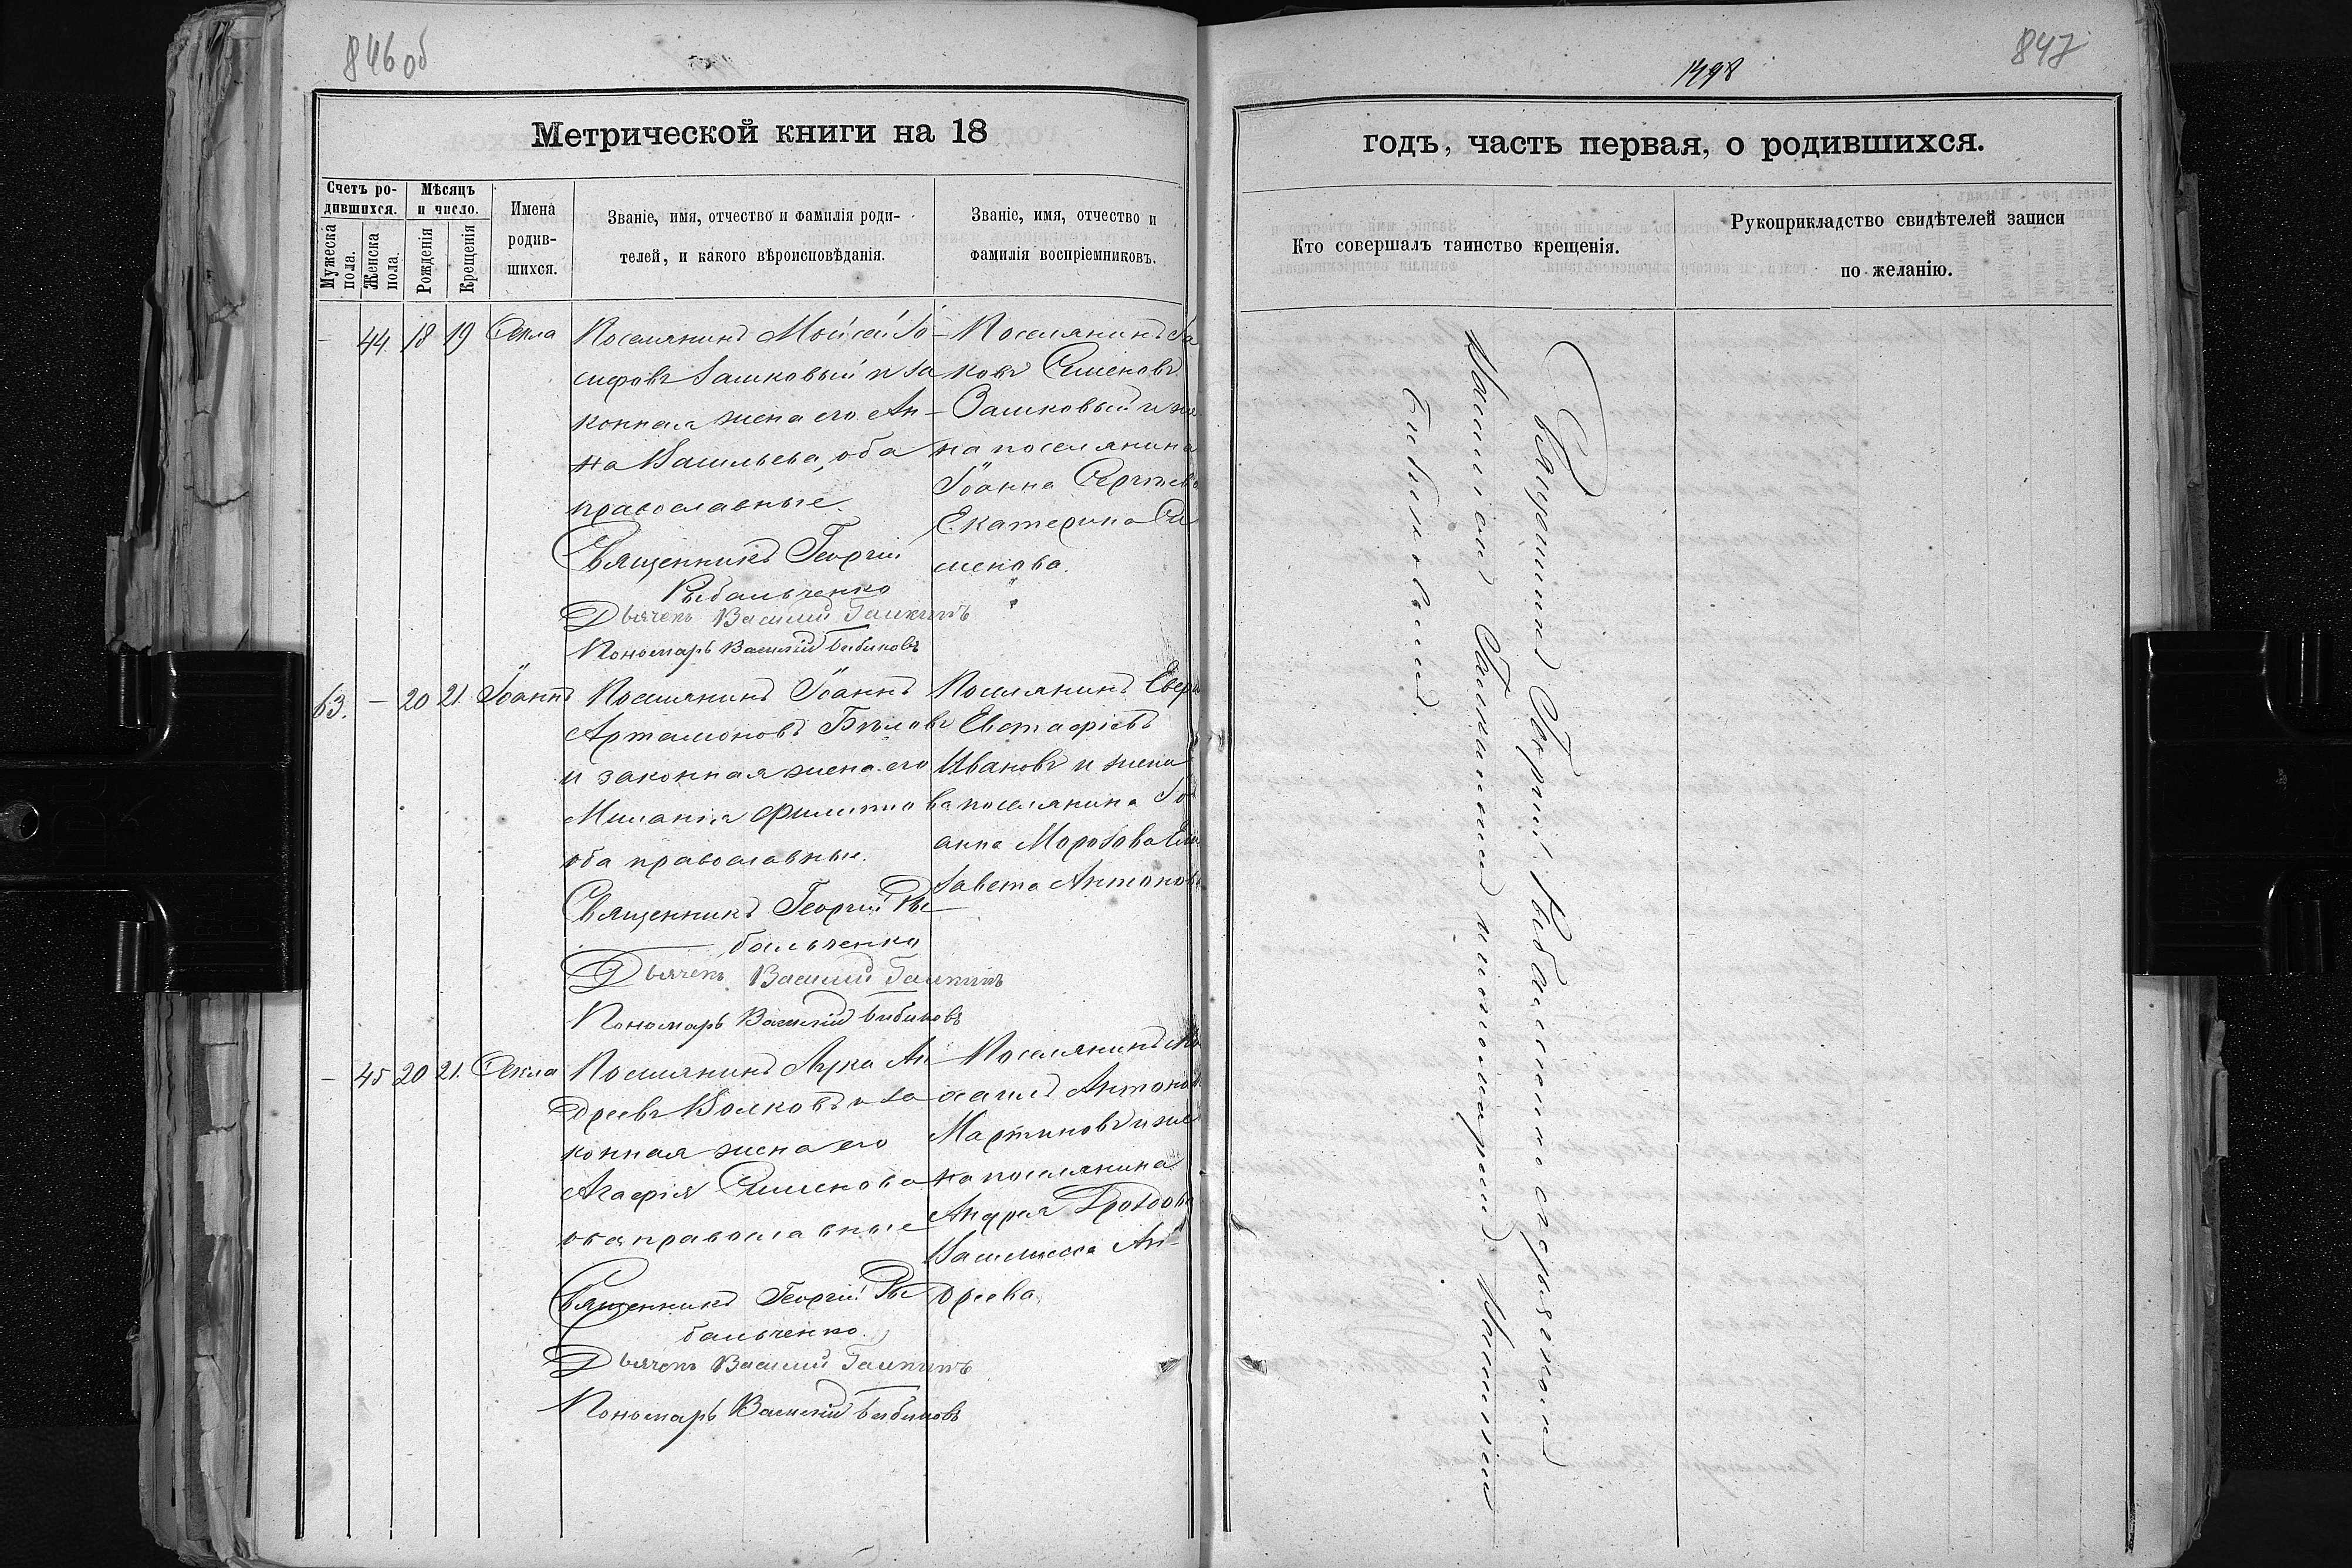 846 об
Метрической книги на 18
Счетъ ро-
дившихся.
Мѣсяцъ
и число.
Мужеска
пола.
Женска
пола.
Рожденія
Крещенія
Имена
родив-
шихся.
Званіе, имя, отчество и фамилія роди-
телей, и какого вѣроисповѣданія.
Званіе, имя, отчество и
фамилія воспріемниковъ.
- 44. 18 19 Ѳекла
Поселянинъ Мойсей Іо-
сифовъ Зашковый и за
конная жена его Ан-
на Васильева, оба
православные.
Священникъ Георгій
Рыбальченко
Дьячекъ Василий Галкинъ
Пономарь Василій Бибиковъ
Поселянинъ Іа
ковъ Сименовъ
Зашковый и же
на поселянина
Іоанна Сергеева
Екатерина Си
менова.
63. - 20 21. Іоаннъ
Поселянинъ Іоаннъ
Артамоновъ Бѣловъ
и законная жена его
Миланія Филиппова
оба православные.
Священникъ Георгій Ры
бальченко
Дьячекъ Василий Галкинъ
Пономарь Василій Бибиковъ
Поселянинъ
Евстафіевъ
Ивановъ и жена
поселянина Іо
анна Морозова Ели
завета Антонова
- 45 20 21. Ѳекла
Поселянинъ Лука Ан
дреевъ Волковъ и за
конная жена его
Агафія Сименова
оба православные
Священникъ Георгій Ры
бальченко.
Дьячекъ Василий Галкинъ
Пономарь Василій Бибиковъ
Поселянинъ Ми
хаилъ Антоновъ
Мартиновъ и же
на поселянина
Андрея Дроздова
Василисса Ан-
дреева
1498
847
годъ, часть первая, о родившихся.
Кто совершалъ таинство крещенія.
Рукоприкладство свидѣтелей записи
по желанію.
Священникъ Георгій Рыбальченко съ дьячкомъ
Василіемъ Галкинымъ и пономаремъ Василіемъ
Бибиковымъ.